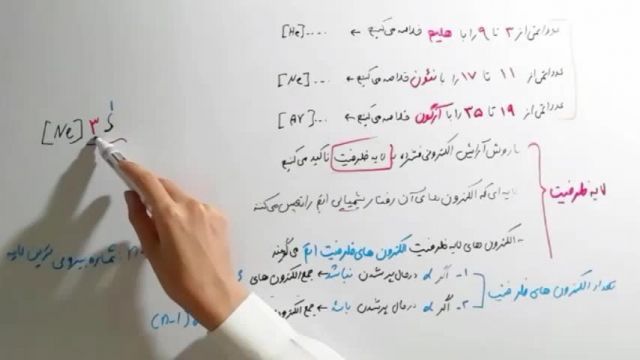 عدد اتمی از ۳ تا ۹ را با هلیم خلاصه می‌کنیم ← [He]....
عدد اتمی از ۱۱ تا ۱۷ را با نئون خلاصه می‌کنیم ← [Ne]....
عدد اتمی از ۱۹ تا ۳۵ را با آرگون خلاصه می‌کنیم ← [Ar]....
[Ne] ۳s¹
با روش آرایش الکترونی فشرده، به لایه ظرفیت تاکید می‌کنیم
لایه ظرفیت
لایه‌ای که الکترون های آن رفتار شیمیایی اتم را تعیین می‌کنند
به الکترون های لایه ظرفیت الکترون های ظرفیت اتم می‌گویند
شماره بیرونی ترین لایه
تعداد الکترون های ظرفیت
۱- اگر d درحال پر شدن نباشد ← جمع الکترون های
۲- اگر d درحال پر شدن باشد ← جمع الکترون
(n-1)